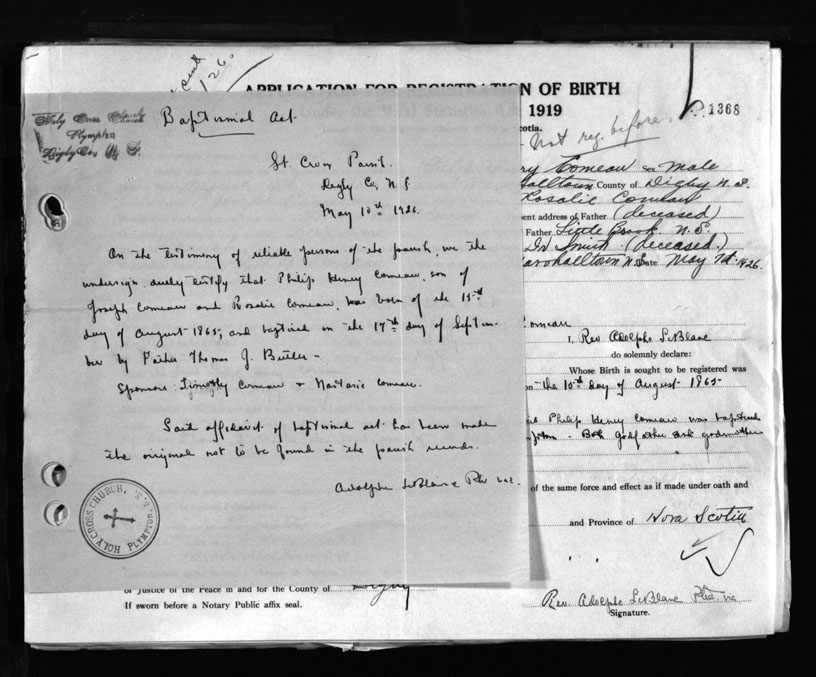 Holy Cross Church
Plympton
Digby Co., N. S.
Baptismal Act.
St. Croix Parish.
Digby Co, N. S.
May 10th 1926.
On the testimony of reliable persons of the parish, we the
undersign duely testify that Philip Henry Comeau, son of
Joseph Comeau and Rosalie Comeau, was born of the 15th
day of August 1865; and baptized on the 17th day of Septem-
ber by Father Thomas J. Butler -
Sponsors: Timothy Comeau + Nastasie Comeau.
Said affidavit of baptismal act has been made
the original not to be found in the parish records.
Adolphe LeBlanc Ptre vic.
HOLY CROSS CHURCH, N.S.
PLYMPTON
APPLICATION FOR REGISTRATION OF BIRTH
1919
1368
Not reg. before
Comeau Sex Male
County of Digby N.S.
Rosalie Comeau
address of Father (deceased)
Father Little Brook N.S.
Dr Smith (deceased.)
Marshalltown N.S. Date May 7th 1926.
Comeau
I, Rev. Adolphe LeBlanc
do solemnly declare:
Whose Birth is sought to be registered was
on the 15th day of August 1865
Philip Henry Comeau was baptized
Both godfather and godmother
of the same force and effect as if made under oath and
and Province of Nova Scotia
or Justice of the Peace in and for the County of Digby
If sworn before a Notary Public affix seal.
Rev. Adolphe LeBlanc Ptre. vic
Signature.